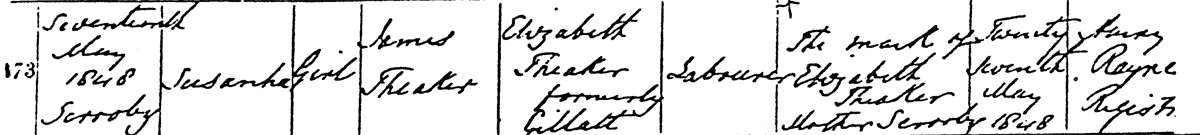 173
Seventeenth
May
1848
Scrooby
Susanna
Girl
James
Theaker
Elizabeth
Theaker
formerly
Gillatt
Labourer
The mark of
Elizabeth
Theaker
Mother Scrooby
Twenty
Seventh
May
1848
Henry
Rayne
Registr.